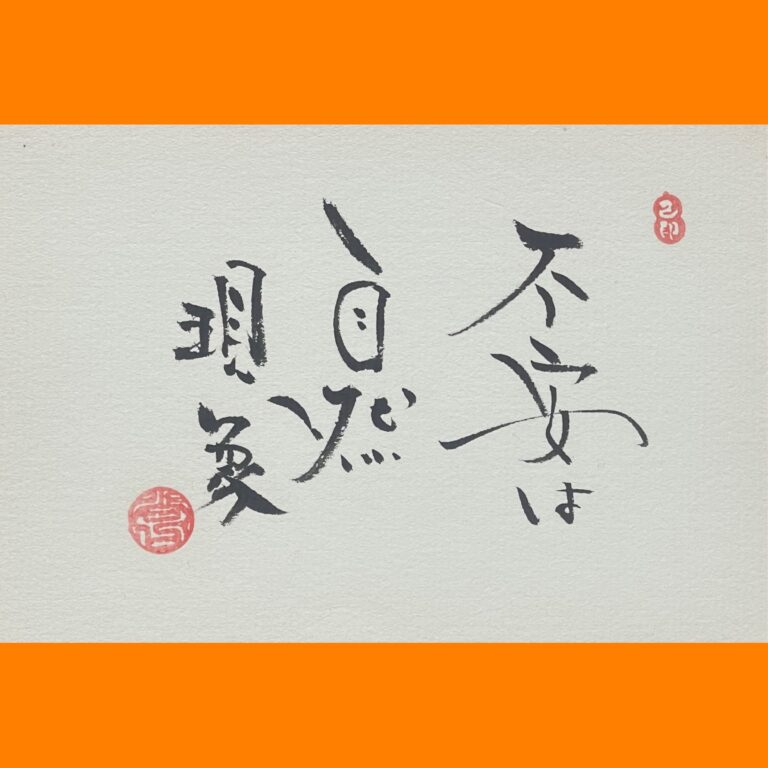 不安は
自然
現象